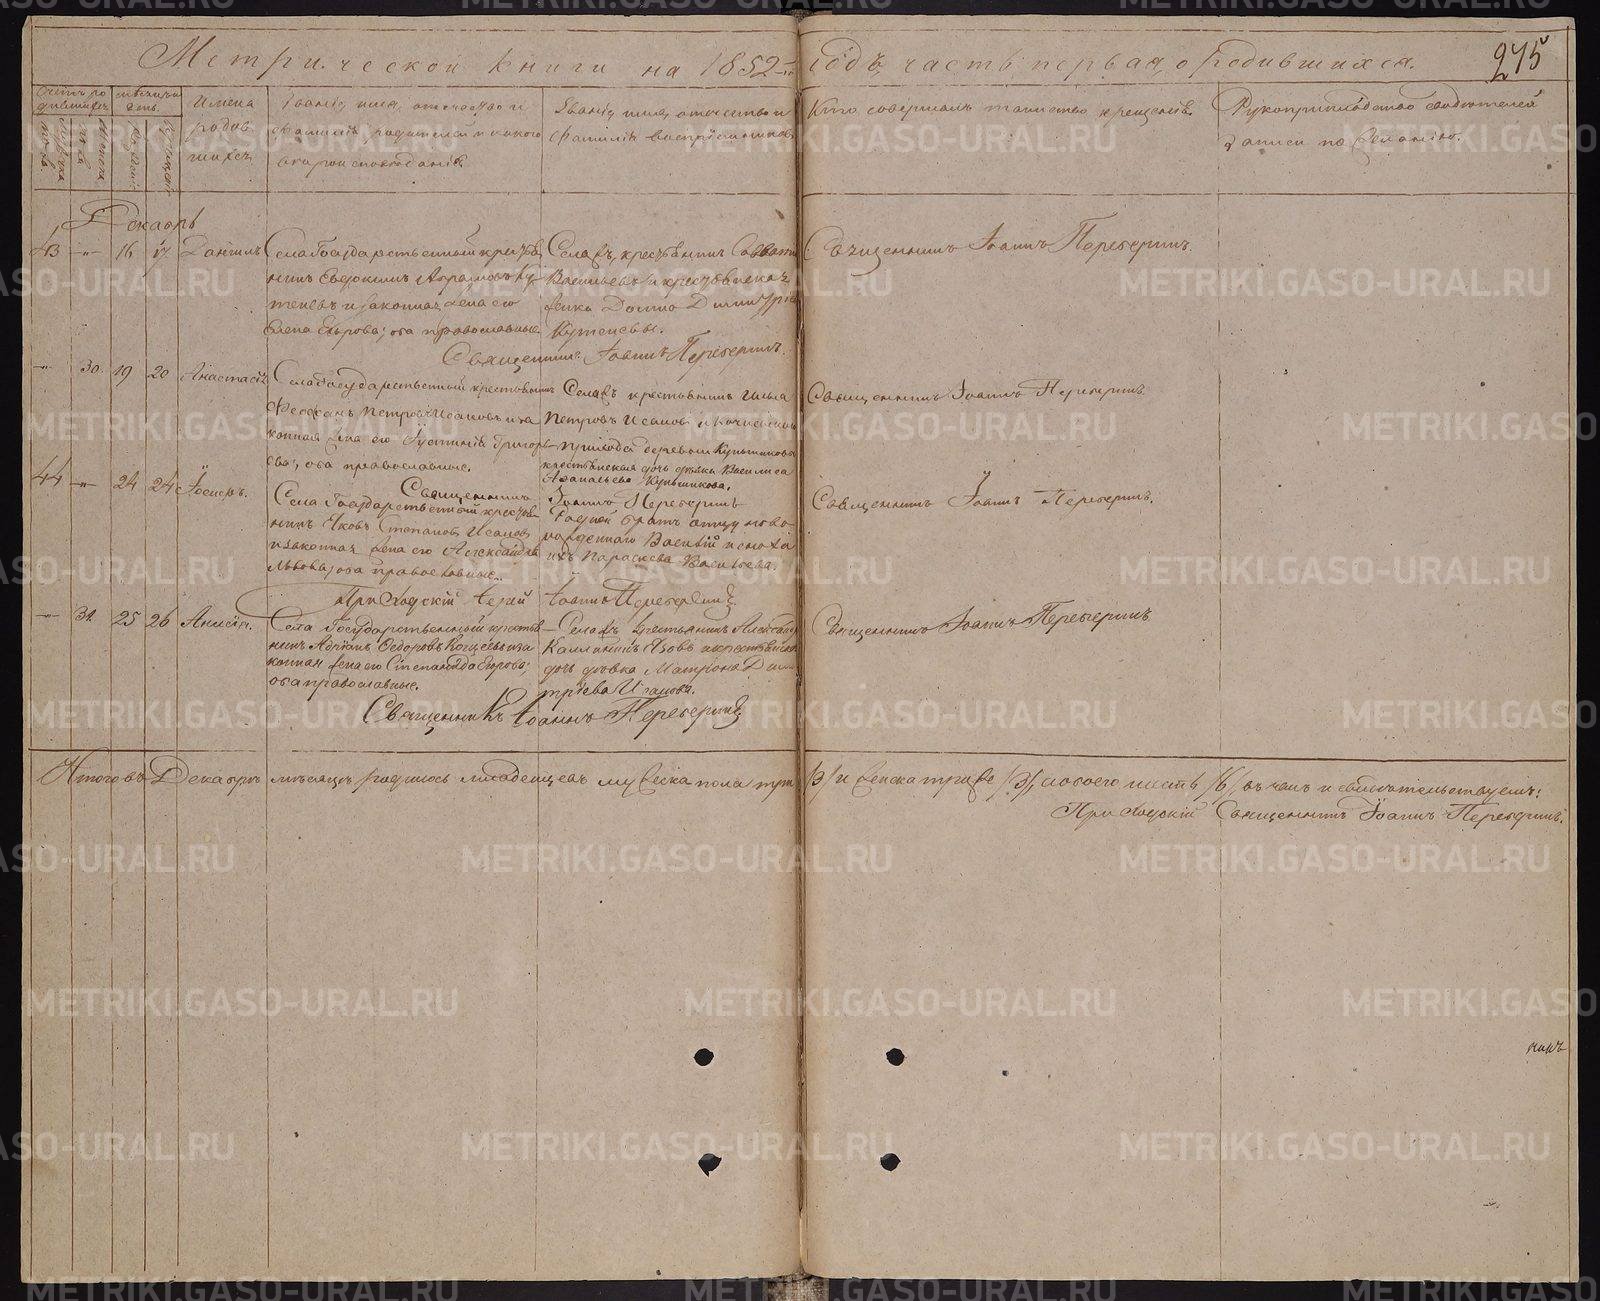 Метрической книги на 1852-й годъ, часть первая, о родившихся.
275
Счетъ родившихся
Мужеска пола
Женска пола
Мѣсяцъ и день
рожденія
крещенія
Имена
родив
шихся
Званіе, имя, отечество и
фамилія родителей и какого
вѣроисповѣданія.
Званіе, имя, отечество и
фамилія воспріемниковъ
Кто совершалъ таинство крещенія.
Рукоприкладство свидѣтелей
записи по желанію.
Декабрь
43 -"- 16 17 Даніилъ
Села Государственный крестья
нинъ Евдокимъ Абрамовъ Ку
теневъ и законная жена его
Елена Егорова; оба православные.
крестьянинъ
Васильевъ и крестьянская
женка Домна Димитріева
Кутеневы.
Священникъ Іоаннъ Переберинъ.
Священникъ Іоаннъ Переберинъ.
-"- 30 19 20 Анастасія
Села Государственный крестьянинъ
Петровъ Исаковъ и за
конная жена его Іустинія Григорь
ева; оба православные.
крестьянинъ Илья
Петровъ Исаковъ и
прихода деревни
крестьянская дочь дѣвка Василиса
Священникъ Іоаннъ Переберинъ
Священникъ Іоаннъ Переберинъ.
44 -"- 24 24 Іосифъ.
Села Государственный крестья
нинъ Яковъ Степановъ Исаковъ
и законная жена его Александра
Львова; оба православные.
Родной братъ отцу ново
рожденнаго Василій и сноха
ихъ Параскева Васильева.
Приходскій Іерей Іоаннъ Переберинъ.
Священникъ Іоаннъ Переберинъ.
-"- 31 25 26 Анисія.
Села Государственный крестья
нинъ Адріанъ Ѳедоровъ и за
конная жена его Степанида Егорова;
оба православные.
крестьянинъ
дочь дѣвка Матрона Дими
тріева Исакова.
Священникъ Іоаннъ Переберинъ
Священникъ Іоаннъ Переберинъ
Итого въ Декабрѣ мѣсяцѣ родилось младенцевъ мужеска пола три /3/ и женска трижъ /3/, а обоего шесть /6/, въ чемъ и свидѣтельствуемъ:
Приходскій Священникъ Іоаннъ Переберинъ.
METRIKI.GASO-URAL.RU